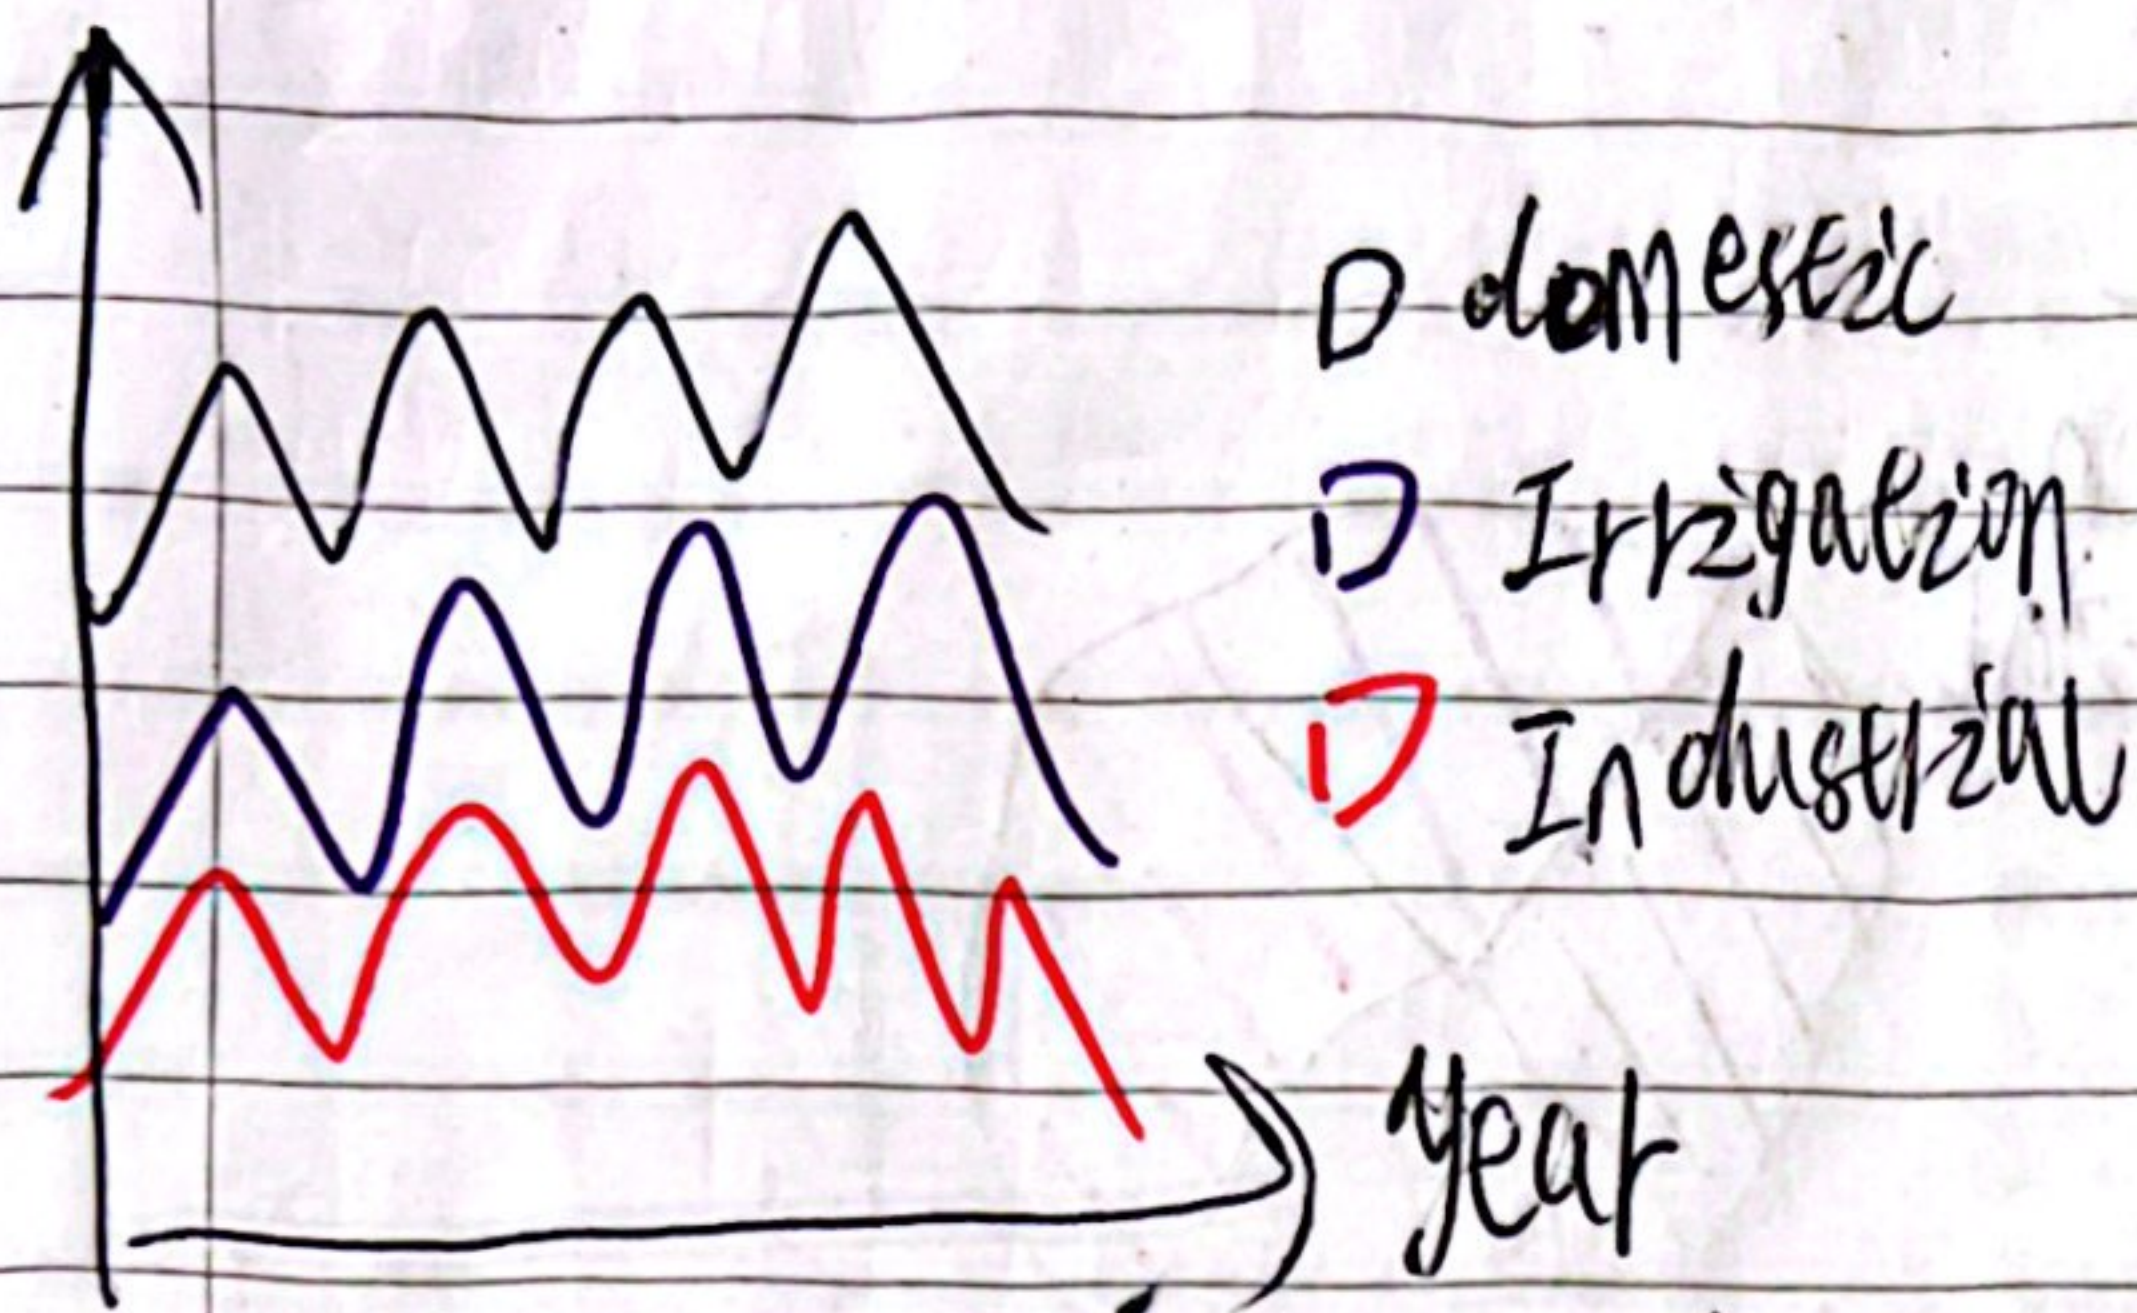 domestic
Irrigation
Industrial
Year